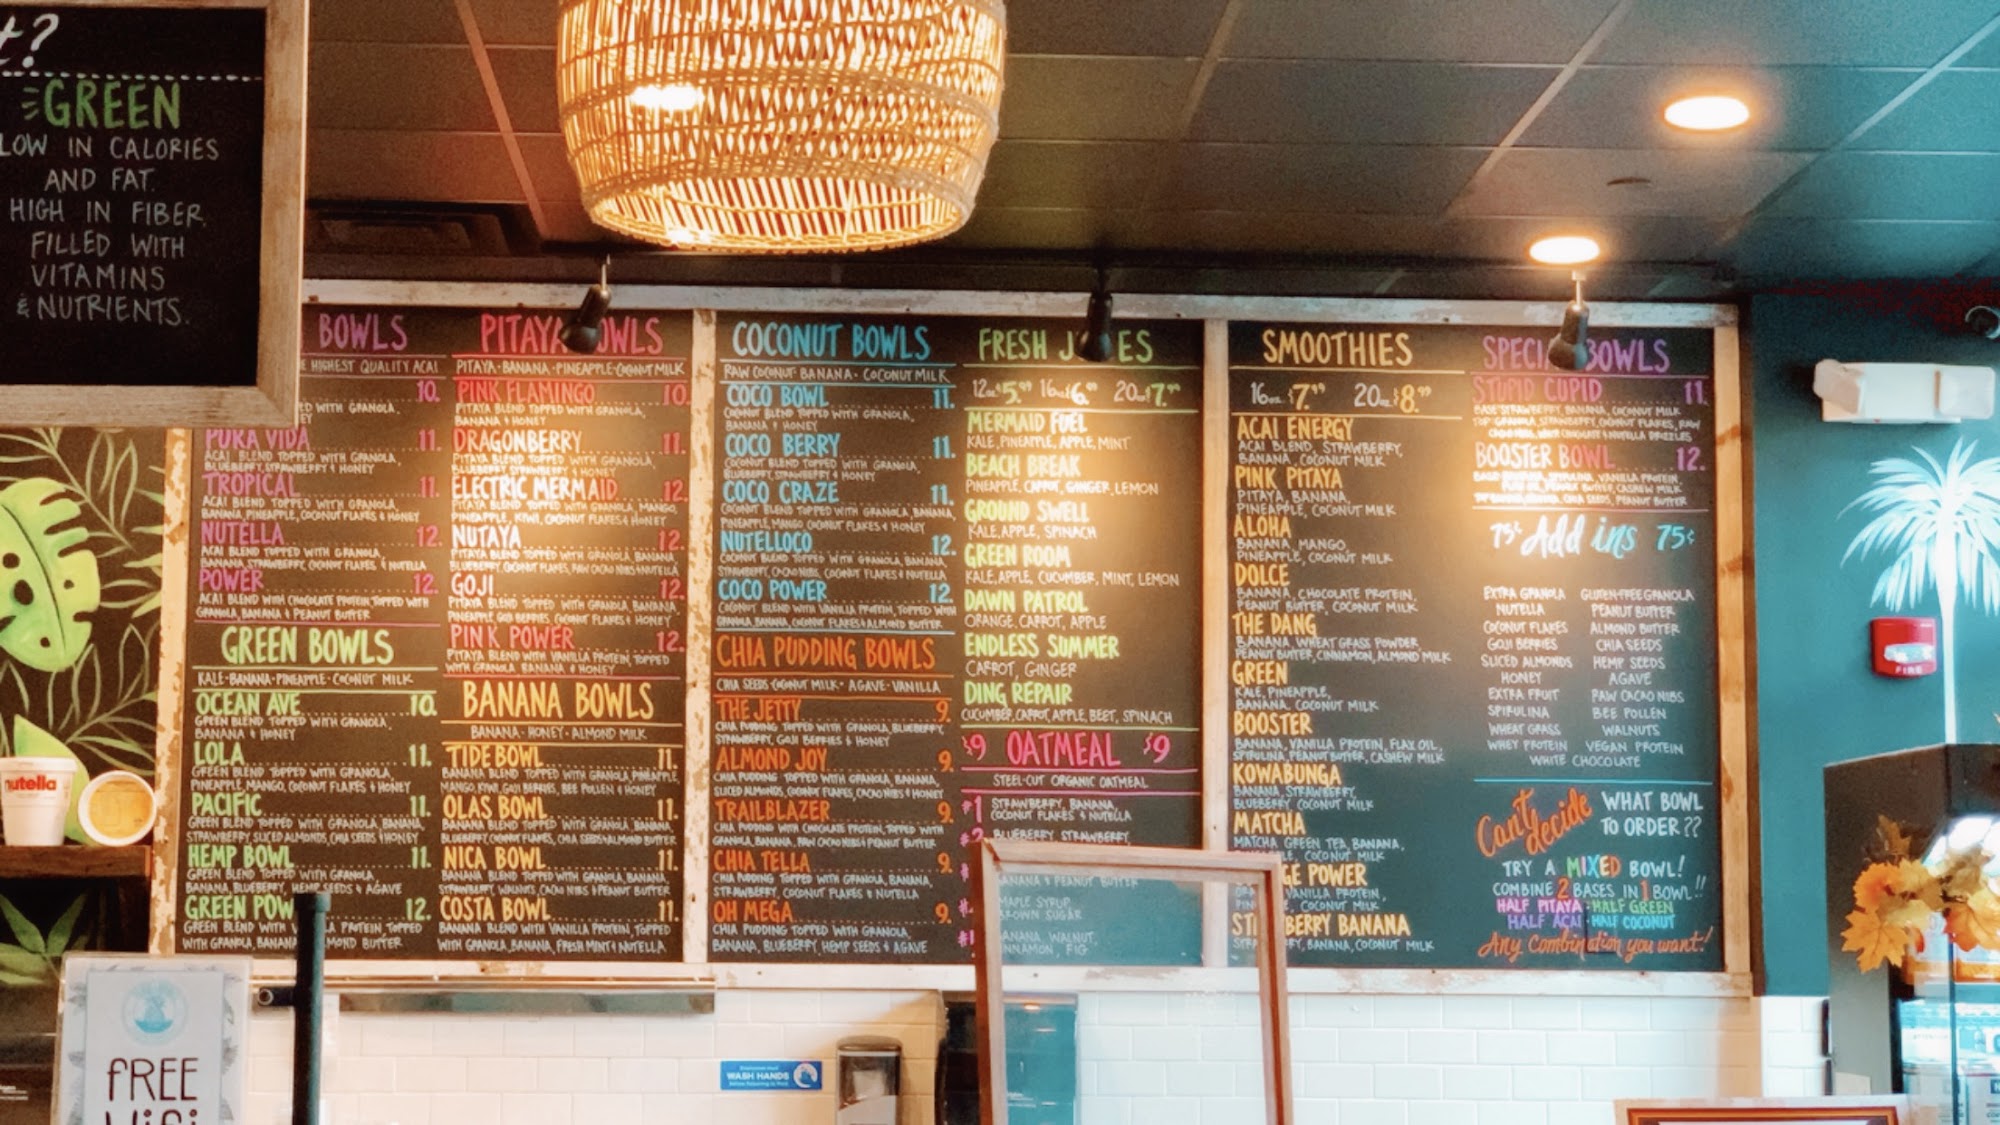 t?
GREEN
LOW IN CALORIES
AND FAT.
HIGH IN FIBER.
FILLED WITH
VITAMINS
& NUTRIENTS.
BOWLS
HIGHEST QUALITY ACAI
10.
WITH GRANOLA,
PURA VIDA 11.
ACAI BLEND TOPPED WITH GRANOLA,
BLUEBERRY, STRAWBERRY & HONEY
TROPICAL 11.
ACAI BLEND TOPPED WITH GRANOLA,
BANANA, PINEAPPLE, COCONUT FLAKES & HONEY
NUTELLA 12.
ACAI BLEND TOPPED WITH GRANOLA,
BANANA, STRAWBERRY, COCONUT FLAKES & NUTELLA
POWER 12.
ACAI BLEND WITH CHOCOLATE PROTEIN, TOPPED WITH
GRANOLA, BANANA & PEANUT BUTTER
GREEN BOWLS
KALE·BANANA·PINEAPPLE·COCONUT MILK
OCEAN AVE 10.
GREEN BLEND TOPPED WITH GRANOLA,
BANANA & HONEY
LOLA 11.
GREEN BLEND TOPPED WITH GRANOLA,
PINEAPPLE, MANGO, COCONUT FLAKES & HONEY
PACIFIC 11.
GREEN BLEND TOPPED WITH GRANOLA, BANANA,
STRAWBERRY, SLICED ALMONDS, CHIA SEEDS & HONEY
HEMP BOWL 11.
GREEN BLEND TOPPED WITH GRANOLA,
BANANA, BLUEBERRY, HEMP SEEDS & AGAVE
GREEN POW 12.
GREEN BLEND WITH PROTEIN, TOPPED
WITH GRANOLA, BANANA MOND BUTTER
PITAYA BOWLS
PITAYA·BANANA·PINEAPPLE·COCONUT MILK
PINK FLAMINGO 10.
PITAYA BLEND TOPPED WITH GRANOLA,
BANANA & HONEY
DRAGONBERRY 11.
PITAYA BLEND TOPPED WITH GRANOLA,
BLUEBERRY, STRAWBERRY & HONEY
ELECTRIC MERMAID 12.
PITAYA BLEND TOPPED WITH GRANOLA, MANGO,
PINEAPPLE, KIWI, COCONUT FLAKES & HONEY
NUTAYA 12.
PITAYA BLEND TOPPED WITH GRANOLA, BANANA,
BLUEBERRY, COCONUT FLAKES, RAW CACAO NIBS & NUTELLA
GOJI 12.
PITAYA BLEND TOPPED WITH GRANOLA, BANANA,
PINEAPPLE, GOJI BERRIES, COCONUT FLAKES & HONEY
PINK POWER 12.
PITAYA BLEND WITH VANILLA PROTEIN, TOPPED
WITH GRANOLA, BANANA & HONEY
BANANA BOWLS
BANANA·HONEY·ALMOND MILK
TIDE BOWL 11.
BANANA BLEND TOPPED WITH GRANOLA, PINEAPPLE,
MANGO, KIWI, GOJI BERRIES, BEE POLLEN & HONEY
OLAS BOWL 11.
BANANA BLEND TOPPED WITH GRANOLA, BANANA,
BLUEBERRY, COCONUT FLAKES, CHIA SEEDS & ALMOND BUTTER
NICA BOWL 11.
BANANA BLEND TOPPED WITH GRANOLA, BANANA,
STRAWBERRY, WALNUTS, CACAO NIBS & PEANUT BUTTER
COSTA BOWL 11.
BANANA BLEND WITH VANILLA PROTEIN, TOPPED
WITH GRANOLA, BANANA, FRESH MINT & NUTELLA
COCONUT BOWLS
RAW COCONUT·BANANA·COCONUT MILK
COCO BOWL 11.
COCONUT BLEND TOPPED WITH GRANOLA,
BANANA & HONEY
COCO BERRY 11.
COCONUT BLEND TOPPED WITH GRANOLA,
BLUEBERRY, STRAWBERRY & HONEY
COCO CRAZE 11.
COCONUT BLEND TOPPED WITH GRANOLA, BANANA,
PINEAPPLE, MANGO, COCONUT FLAKES & HONEY
NUTELLOCO 12.
COCONUT BLEND TOPPED WITH GRANOLA, BANANA,
STRAWBERRY, CACAO NIBS, COCONUT FLAKES & NUTELLA
COCO POWER 12.
COCONUT BLEND WITH VANILLA PROTEIN, TOPPED WITH
GRANOLA, BANANA, COCONUT FLAKES & ALMOND BUTTER
CHIA PUDDING BOWLS
CHIA SEEDS·COCONUT MILK·AGAVE·VANILLA
THE JETTY 9.
CHIA PUDDING TOPPED WITH GRANOLA, BLUEBERRY,
STRAWBERRY, GOJI BERRIES & HONEY
ALMOND JOY 9.
CHIA PUDDING TOPPED WITH GRANOLA, BANANA,
SLICED ALMONDS, COCONUT FLAKES, CACAO NIBS & HONEY
TRAILBLAZER 9.
CHIA PUDDING WITH CHOCOLATE PROTEIN, TOPPED WITH
GRANOLA, BANANA, RAW CACAO NIBS & PEANUT BUTTER
CHIA TELLA 9.
CHIA PUDDING TOPPED WITH GRANOLA, BANANA,
STRAWBERRY, COCONUT FLAKES & NUTELLA
OH MEGA 9.
CHIA PUDDING TOPPED WITH GRANOLA,
BANANA, BLUEBERRY, HEMP SEEDS & AGAVE
FRESH J ES
12oz $5.99 16oz $6.99 20oz $7.99
MERMAID FUEL
KALE, PINEAPPLE, APPLE, MINT
BEACH BREAK
PINEAPPLE, CARROT, GINGER, LEMON
GROUND SWELL
KALE, APPLE, SPINACH
GREEN ROOM
KALE, APPLE, CUCUMBER, MINT, LEMON
DAWN PATROL
ORANGE, CARROT, APPLE
ENDLESS SUMMER
CARROT, GINGER
DING REPAIR
CUCUMBER, CARROT, APPLE, BEET, SPINACH
$9 OATMEAL $9
STEEL-CUT ORGANIC OATMEAL
#1 STRAWBERRY, BANANA,
COCONUT FLAKES & NUTELLA
#2 BLUEBERRY, STRAWBERRY,
BANANA & PEANUT BUTTER
MAPLE SYRUP
BROWN SUGAR
BANANA, WALNUT,
CINNAMON, FIG
SMOOTHIES
16oz. $7.49 20oz. $8.99
ACAI ENERGY
ACAI BLEND, STRAWBERRY,
BANANA, COCONUT MILK
PINK PITAYA
PITAYA, BANANA,
PINEAPPLE, COCONUT MILK
ALOHA
BANANA, MANGO,
PINEAPPLE, COCONUT MILK
DOLCE
BANANA, CHOCOLATE PROTEIN,
PEANUT BUTTER, COCONUT MILK
THE DANG
BANANA, WHEAT GRASS POWDER
PEANUT BUTTER, CINNAMON, ALMOND MILK
GREEN
KALE, PINEAPPLE,
BANANA, COCONUT MILK
BOOSTER
BANANA, VANILLA PROTEIN, FLAX OIL,
SPIRULINA, PEANUT BUTTER, CASHEW MILK
KOWABUNGA
BANANA, STRAWBERRY,
BLUEBERRY, COCONUT MILK
MATCHA
MATCHA GREEN TEA, BANANA,
LE, COCONUT MILK
GE POWER
VANILLA PROTEIN,
COCONUT MILK
ST BERRY BANANA
RY, BANANA, COCONUT MILK
SPECIAL BOWLS
STUPID CUPID 11.
BASE: STRAWBERRY, BANANA, COCONUT MILK
TOP: GRANOLA, STRAWBERRY, COCONUT FLAKES, RAW
CACAO NIBS, WHITE CHOCOLATE & NUTELLA DRIZZLES
BOOSTER BOWL 12.
VANILLA PROTEIN,
PEANUT BUTTER, CASHEW MILK
CHIA SEEDS, PEANUT BUTTER
75¢ Add ins 75¢
EXTRA GRANOLA GLUTEN-FREE GRANOLA
NUTELLA PEANUT BUTTER
COCONUT FLAKES ALMOND BUTTER
GOJI BERRIES CHIA SEEDS
SLICED ALMONDS HEMP SEEDS
HONEY AGAVE
EXTRA FRUIT RAW CACAO NIBS
SPIRULINA BEE POLLEN
WHEAT GRASS WALNUTS
WHEY PROTEIN VEGAN PROTEIN
WHITE CHOCOLATE
Can't decide WHAT BOWL
TO ORDER??
TRY A MIXED BOWL!
COMBINE 2 BASES IN 1 BOWL!!
HALF PITAYA·HALF GREEN
HALF ACAI·HALF COCONUT
Any combination you want!
FIRE
nutella
FREE
Wifi
WASH HANDS